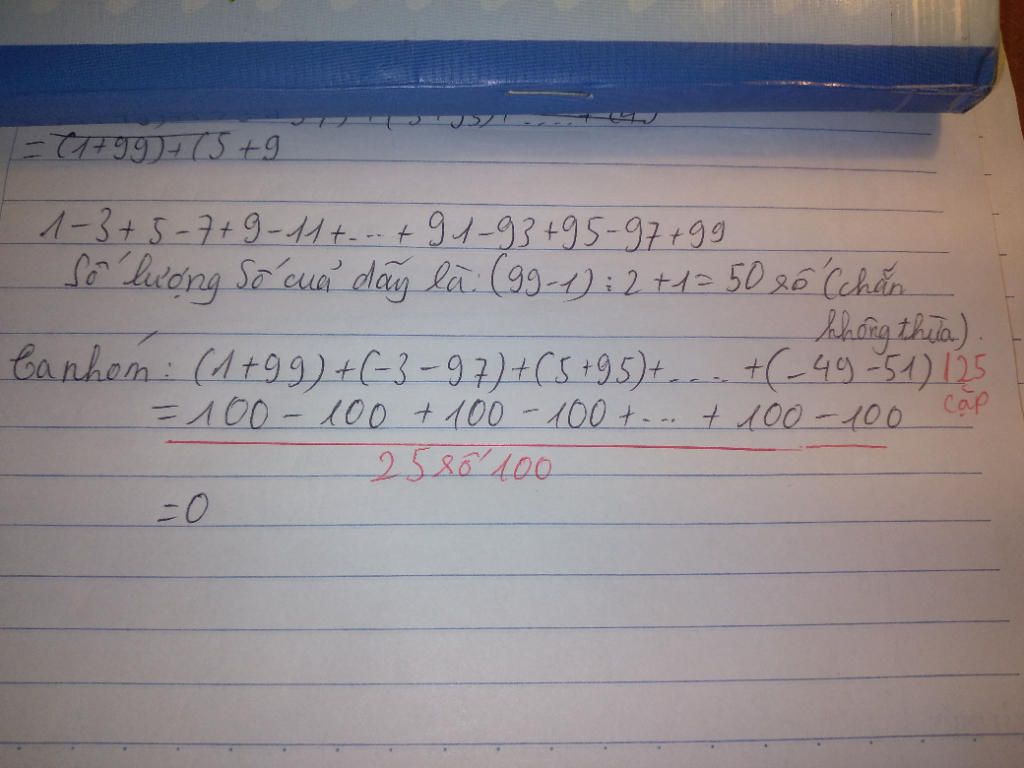 = (1+99)+(5+9
1-3+5-7+9-11+...+91-93+95-97+99
Số lượng số của dãy là: (99-1):2+1=50 số (chẵn
không thừa).
Ta nhóm: (1+99)+(-3-97)+(5+95)+....+(-49-51) 125
cặp
=100-100+100-100+...+100-100
25 số 100
=0